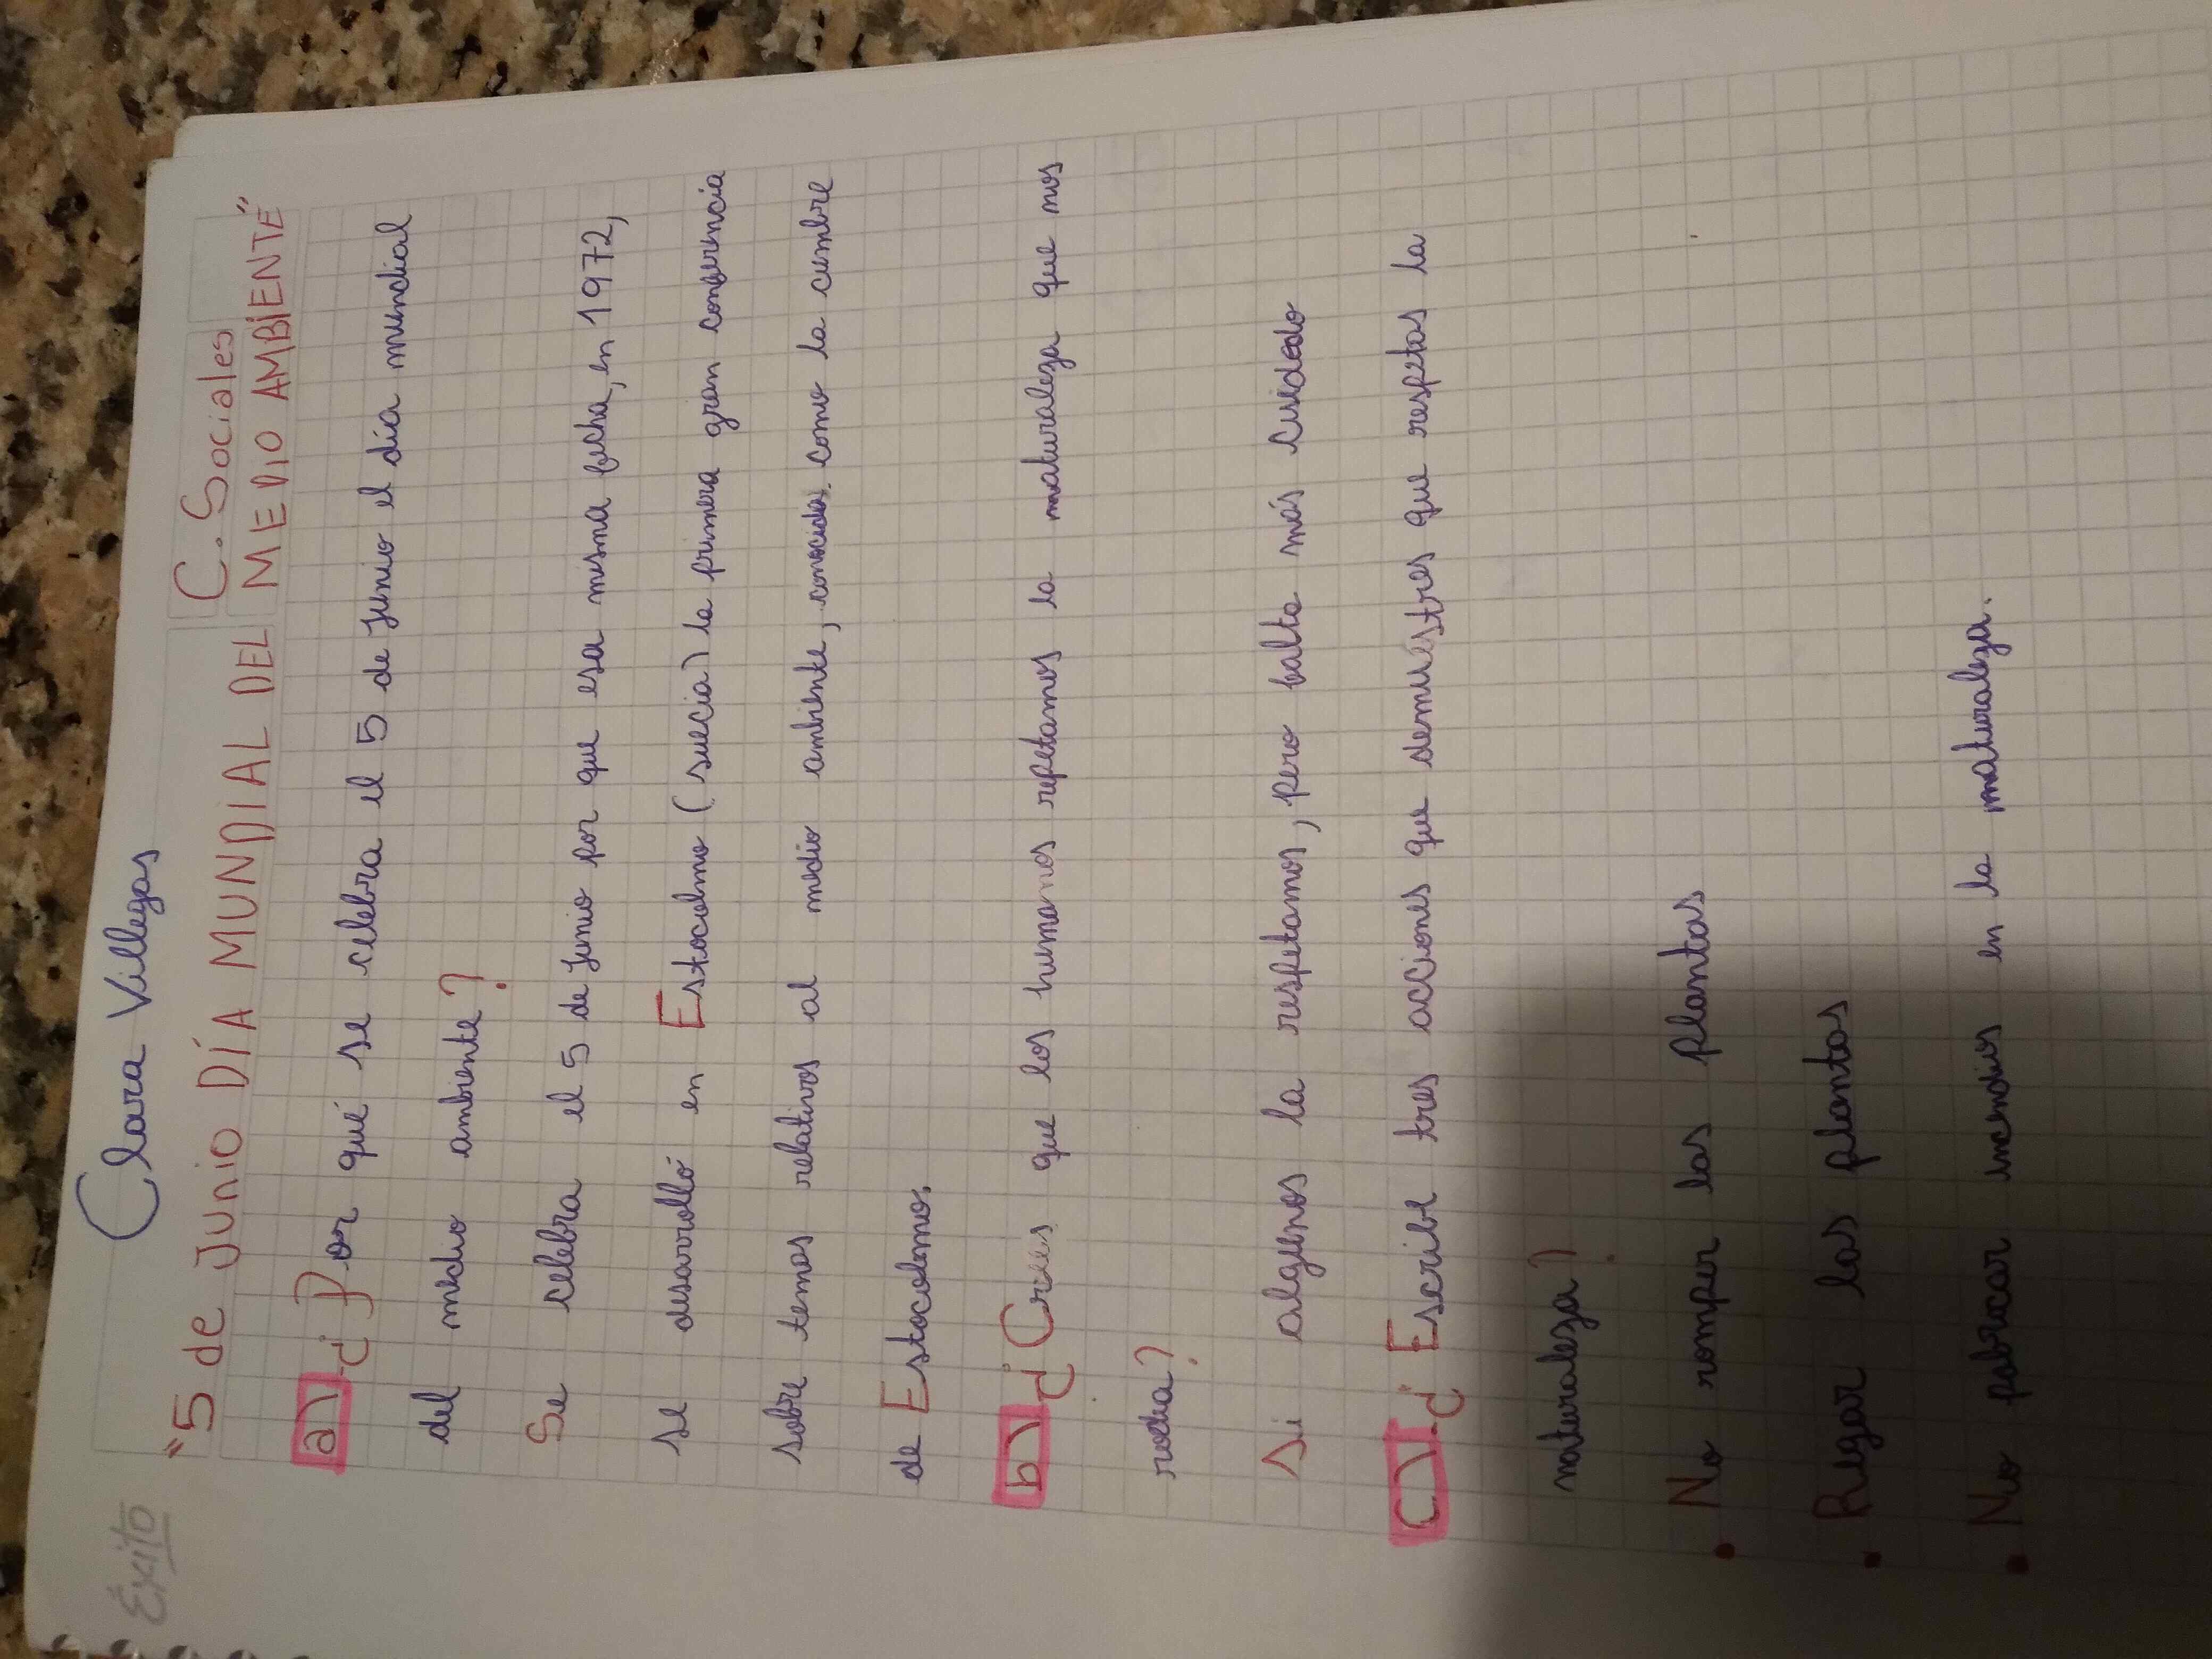 Éxito
Clara Villegas
C. Sociales
"5 de Junio DÍA MUNDIAL DEL MEDIO AMBIENTE"
a) ¿Por qué se celebra el 5 de Junio el día mundial
del medio ambiente?
Se celebra el 5 de Junio por que esa misma fecha, en 1972,
se desarrolló en Estocolmo (suecia) la primera gran conferencia
sobre temas relativos al medio ambiente, conocida como la cumbre
de Estocolomo.
b) ¿Crees que los humanos repetamos la naturaleza que nos
rodea?
Si algunos la respetamos, pero falta más cuidado
c) ¿Escribe tres acciones que demuestres que respetas la
naturaleza?
• No romper las plantas
• Regar las plantas
• No fabricar incendios en la naturaleza.